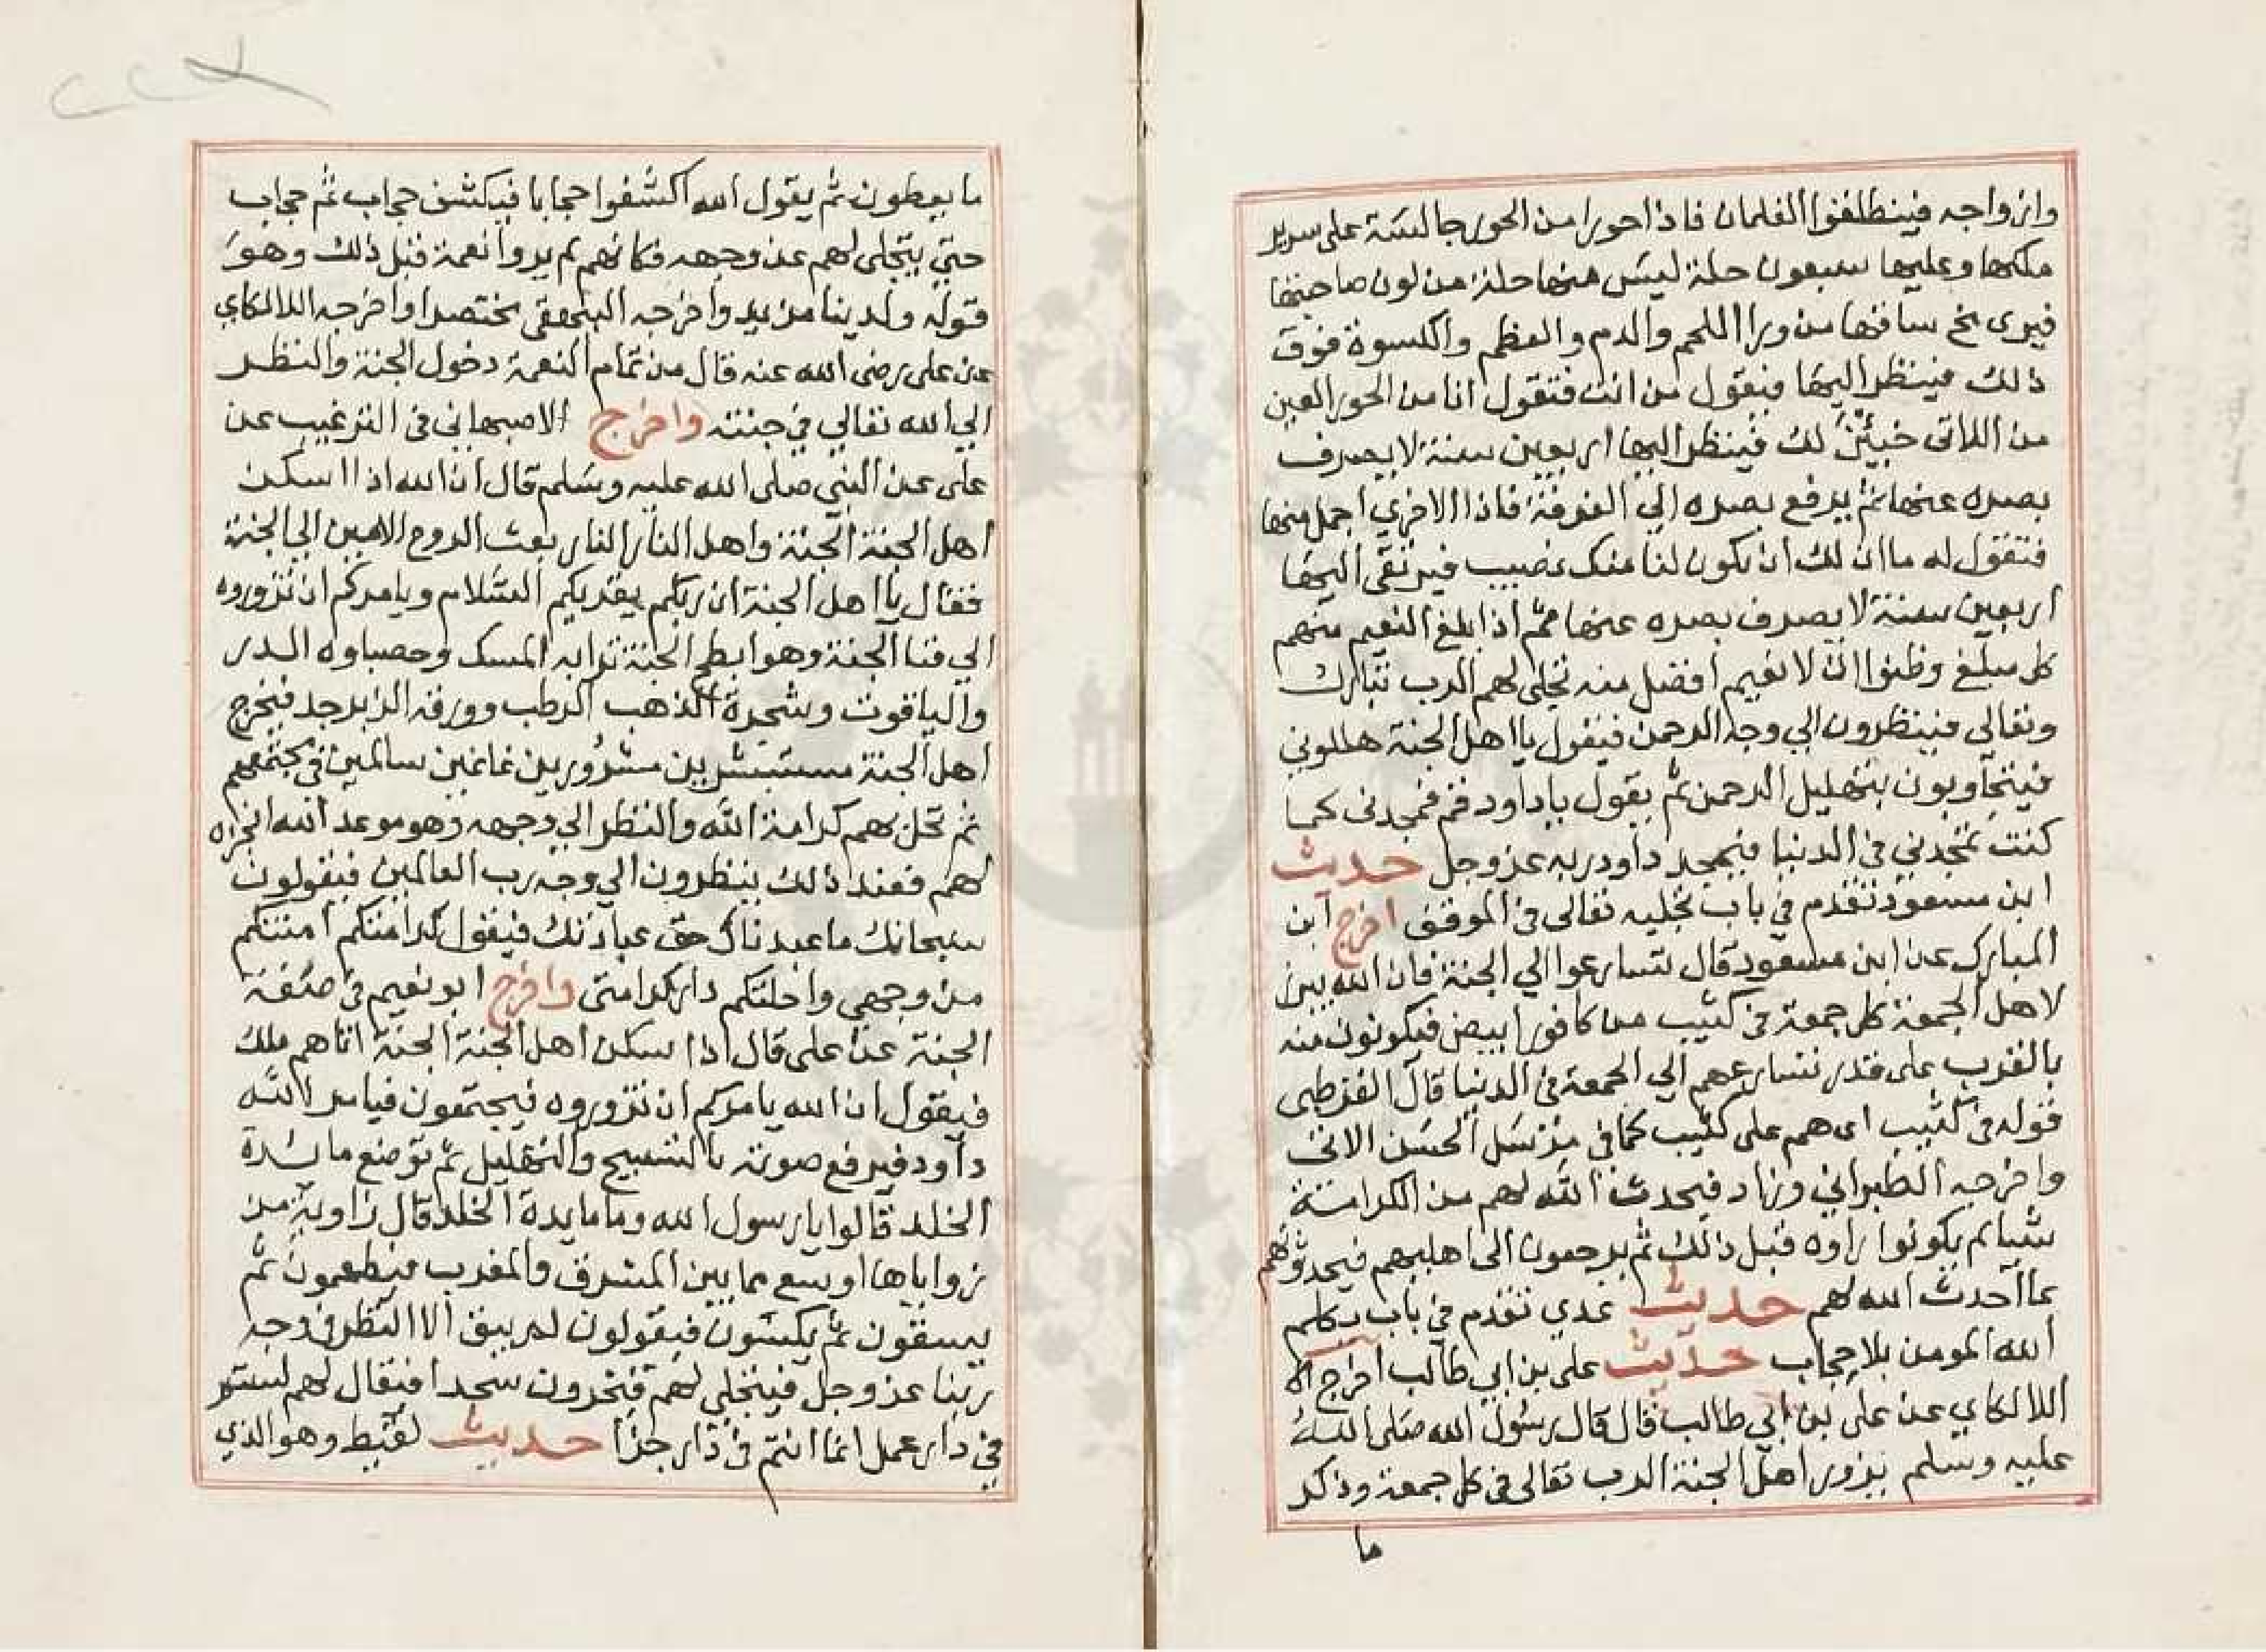 وازواجه فينطلقوا الغلمان فاذا حورا من الحور جالسة على سرير
ملكها وعليها سبعون حلة ليس منها حلة من لون صاحبتها
فيرى مخ ساقها من ورا اللحم والدم والعظم والكسوة فوق
ذلك فينظر اليها فيقول من انت فتقول انا من الحور العين
من اللاتى خبئن لك فينظر اليها اربعين سنة لا يصرف
بصره عنها ثم يرفع بصره الي الغرفة فاذا الاخري اجمل منها
فتقول له ما ان لك ان يكون لنا منك نصيب فيرتقى اليها
اربعين سنة لا يصرف بصره عنها ثم اذا بلغ النعيم منهم
كل مبلغ وظنوا ان لا نعيم افضل منه تجلى لهم الرب تبارك
وتعالي فينظرون الي وجه الرحمن فيقول يا اهل الجنة هللوني
فيتجاوبون بتهليل الرحمن ثم يقول يا داود قم فمجدنى كما
كنت تمجدني في الدنيا فيمجد داود ربه عز وجل حديث
ابن مسعود تقدم في باب تجليه تعالى في الموقف اخرج ابن
المبارك عن ابن مسعود قال تسارعوا الي الجنة فان الله يبرز
لاهل الجمعة كل جمعة في كثيب من كافور ابيض فيكونون منه
بالقرب على قدر تسارعهم الي الجمعة في الدنيا قال القرطبى
قوله في كثيب اى هم على كثيب كما في مرسل الحسن الاتى
واخرجه الطبراني وزاد فيحدث الله لهم من الكرامة
شيا لم يكونوا راوه قبل ذلك ثم يرجعون الى اهليهم فيحدثونهم
بما احدث الله لهم حديث عدي تقدم في باب يكلم
الله المومن بلا حجاب حديث على بن ابي طالب اخرج الا
اللالكاي عن على بن ابي طالب قال قال رسول الله صلى الله
عليه وسلم يزور اهل الجنة الرب تعالى في كل جمعة وذكر
ما
ما يعطون ثم يقول الله اكشفوا حجابا فيكشف حجاب ثم حجاب
حتي يتجلى لهم عن وجهه فكانهم لم يروا نعمة قبل ذلك وهو
قوله ولدينا مزيد واخرجه البيهقى مختصرا واخرجه اللالكاي
عن على رضى الله عنه قال من تمام النعمة دخول الجنة والنظر
الي الله تعالي في جنته واخرج الاصبهاني في الترغيب عن
على عن النبي صلى الله عليه وسلم قال ان الله اذا اسكن
اهل الجنة الجنة واهل النار النار بعث الروح الامين الي الجنة
فقال يا اهل الجنة ان ربكم يقريكم السلام ويامركم ان تزوروه
الي فنا الجنة وهو ابطح الجنة ترابه المسك وحصباوه الدر
والياقوت وشجرة الذهب الرطب وورقه الزبرجد فيخرج
اهل الجنة مستبشرين مسرورين غانمين سالمين في مجتمعهم
ثم تحل بهم كرامة الله والنظر الي وجهه وهو موعد الله انجزه
لهم فعند ذلك ينظرون الي وجه رب العالمين فيقولون
سبحانك ما عبدناك حق عبادتك فيقول كرامتكم امنتكم
من وجهي واحلتكم دار كرامتى واخرج ابو نعيم في صفة
الجنة عن على قال اذا سكن اهل الجنة الجنة اتاهم ملك
فيقول ان الله يامركم ان تزوروه فيجتمعون فيامر الله
داود فيرفع صوته بالتسبيح والتهليل ثم توضع مايدة
الخلد قالوا يا رسول الله وما مايدة الخلد قال زاوية من
زواياها اوسع مما بين المشرق والمغرب فيطعمون ثم
يسقون ثم يكسون فيقولون لم يبق الا النظر في وجه
ربنا عز وجل فيتجلي لهم فيخرون سجدا فيقال لهم لستم
في دار عمل انما انتم في دار جزا حديث لقيط وهو الذي